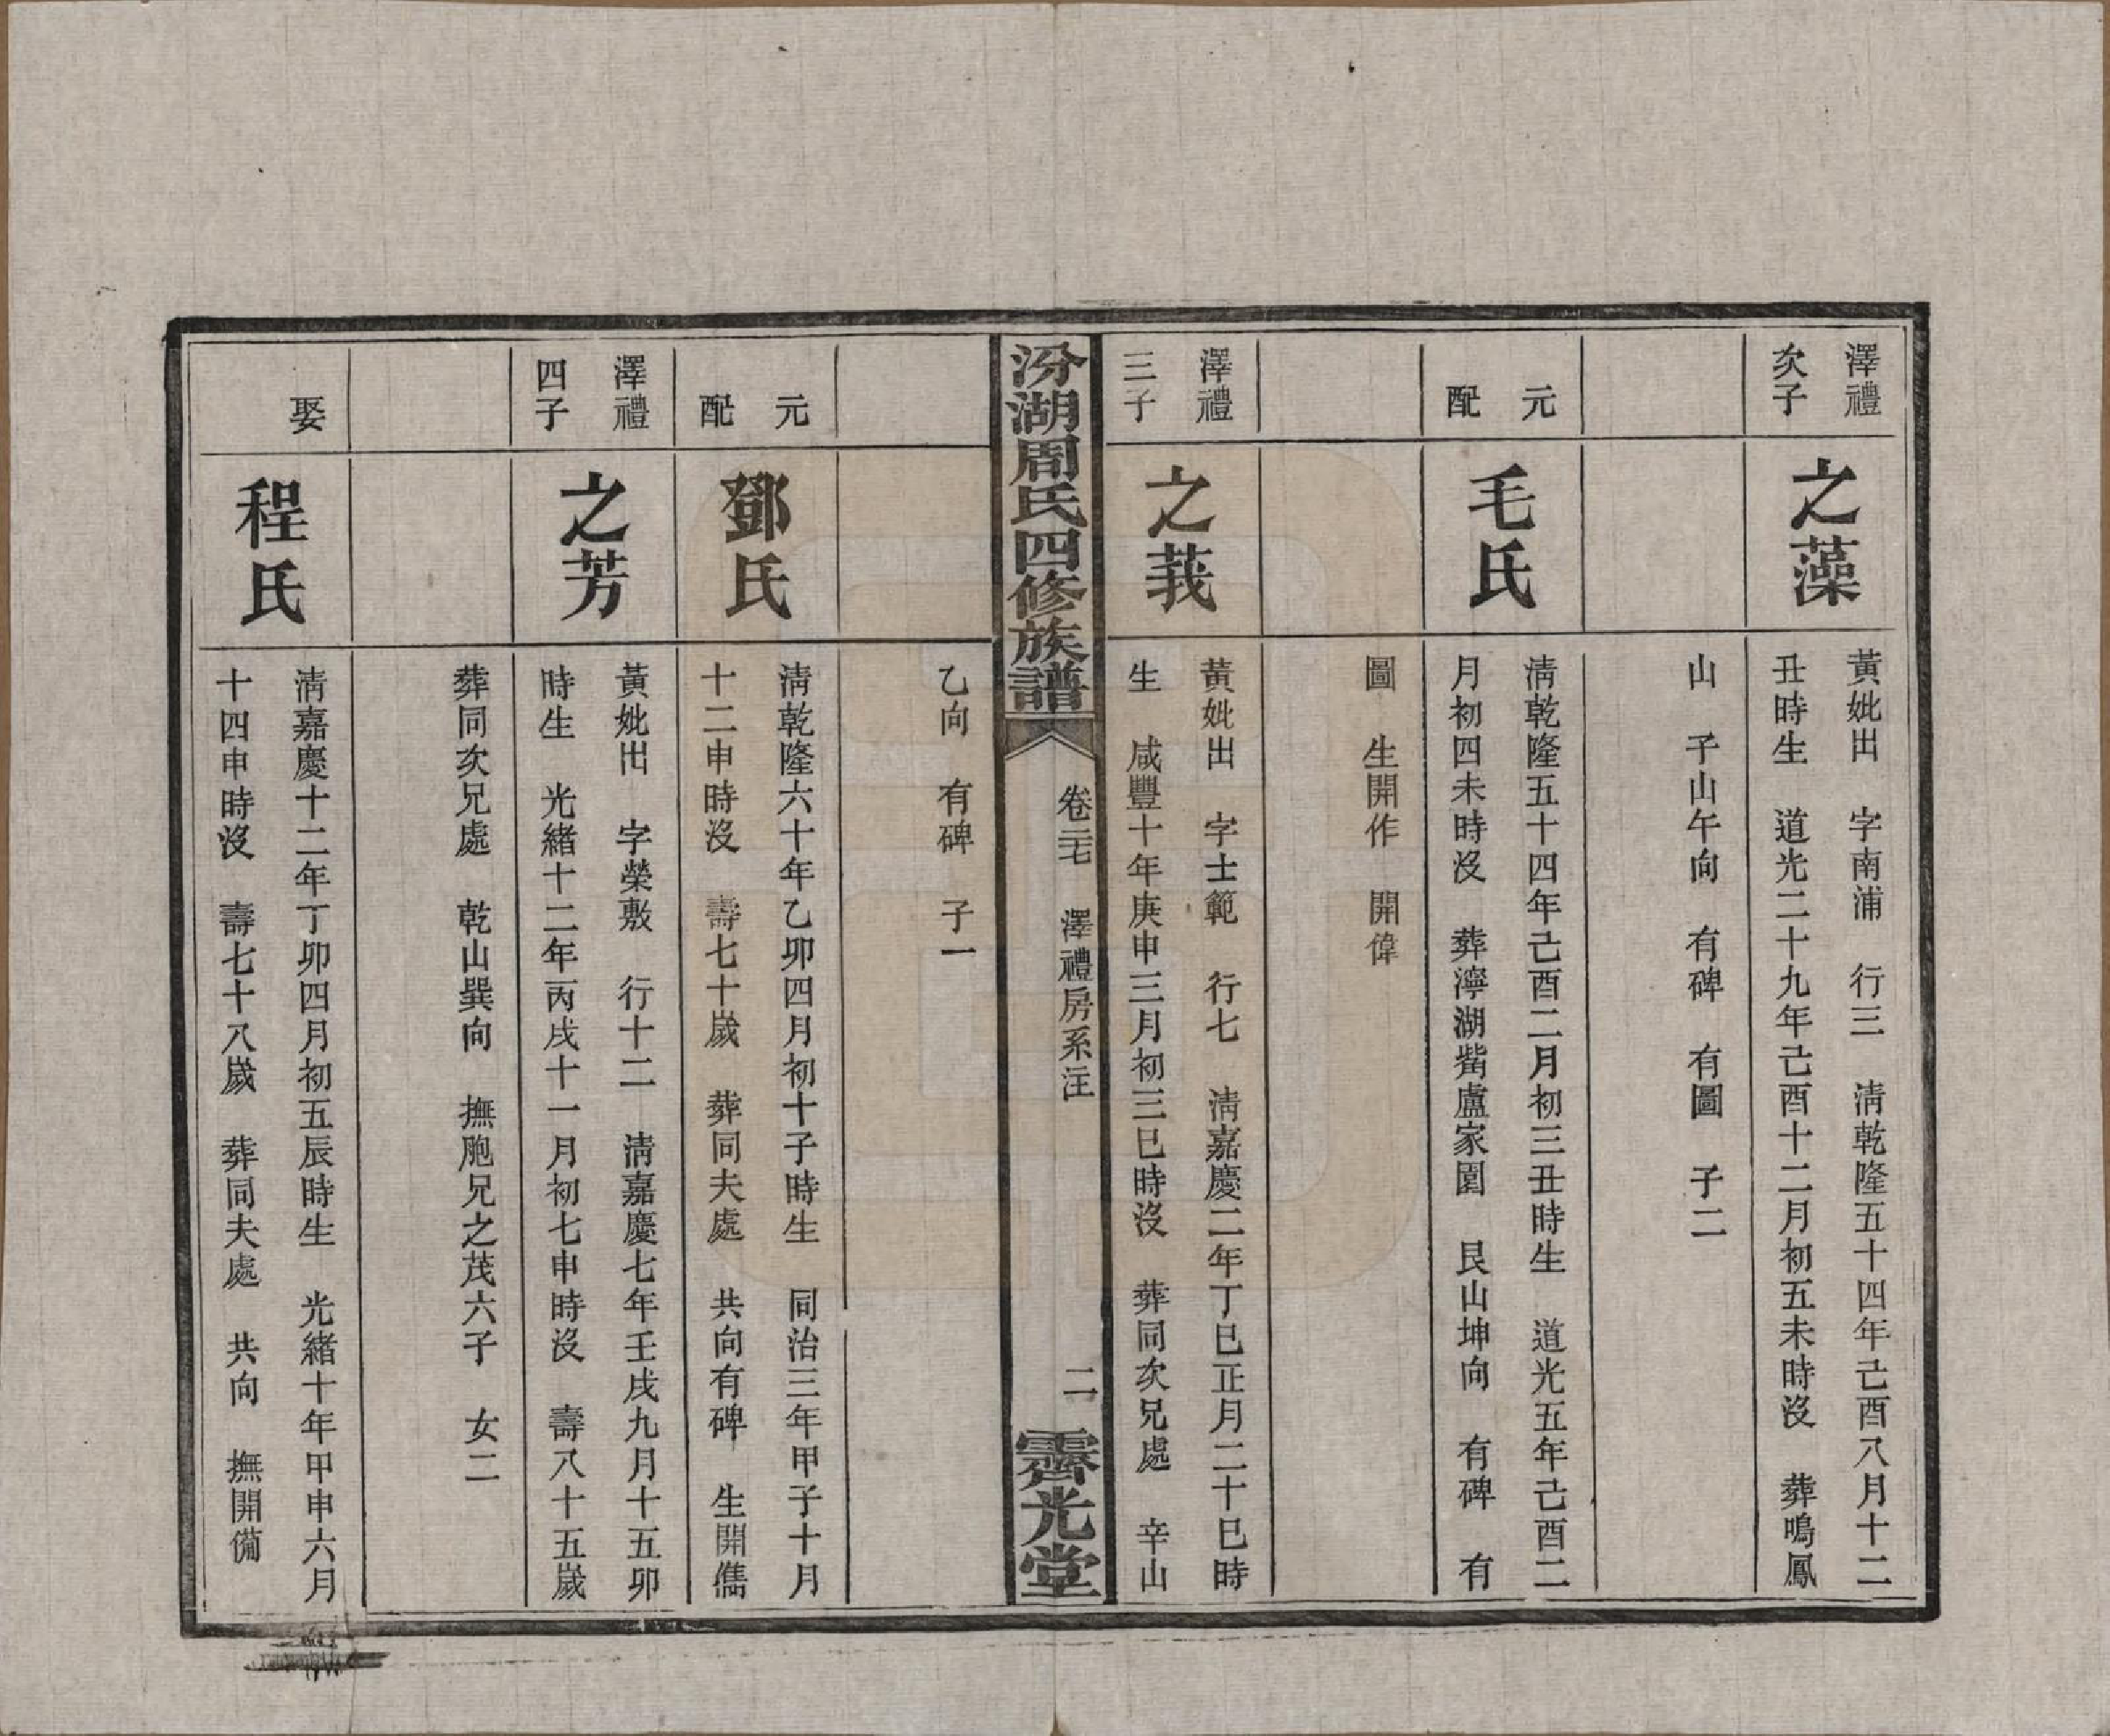 澤禮
次子
之藻
黃妣出　字南浦　行三　清乾隆五十四年己酉八月十二
丑時生　道光二十九年己酉十二月初五未時沒　葬鳴鳳
山　子山午向　有碑　有圖　子二
元
配
毛氏
清乾隆五十四年己酉二月初三丑時生　道光五年己酉二
月初四未時沒　葬濘湖觜盧家園　艮山坤向　有碑　有
圖　生開作　開偉
澤禮
三子
之莪
黃妣出　字士範　行七　清嘉慶二年丁巳正月二十巳時
生　咸豐十年庚申三月初三巳時沒　葬同次兄處　辛山
汾湖周氏四修族譜
卷二十七　澤禮房系注
二
霽光堂
乙向　有碑　子一
元
配
鄧氏
清乾隆六十年乙卯四月初十子時生　同治三年甲子十月
十二申時沒　壽七十歲　葬同夫處　共向有碑　生開儁
澤禮
四子
之芳
黃妣出　字榮敷　行十二　清嘉慶七年壬戌九月十五卯
時生　光緒十二年丙戌十一月初七申時沒　壽八十五歲
葬同次兄處　乾山巽向　撫胞兄之茂六子　女二
娶
程氏
清嘉慶十二年丁卯四月初五辰時生　光緒十年甲申六月
十四申時沒　壽七十八歲　葬同夫處　共向　撫開備